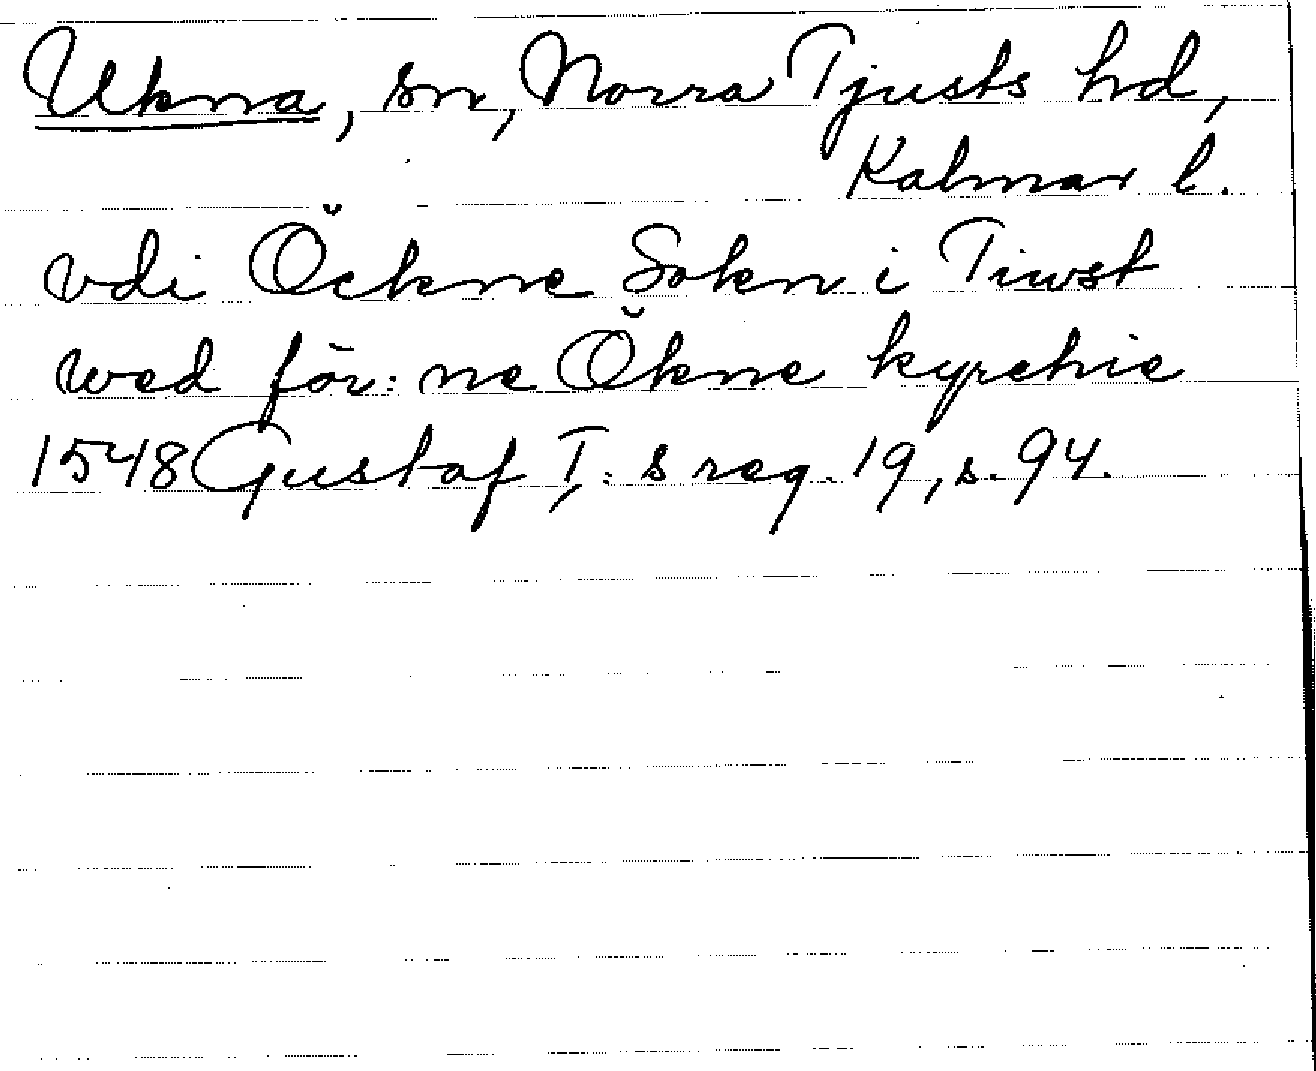 Ukna, sn, Norra Tjusts hd,
Kalmar l.
vdi Öckne Sokn i Tiwst
wed för: ne Ökne kyrchie
1548 Gustaf I: s reg. 19, s. 94.